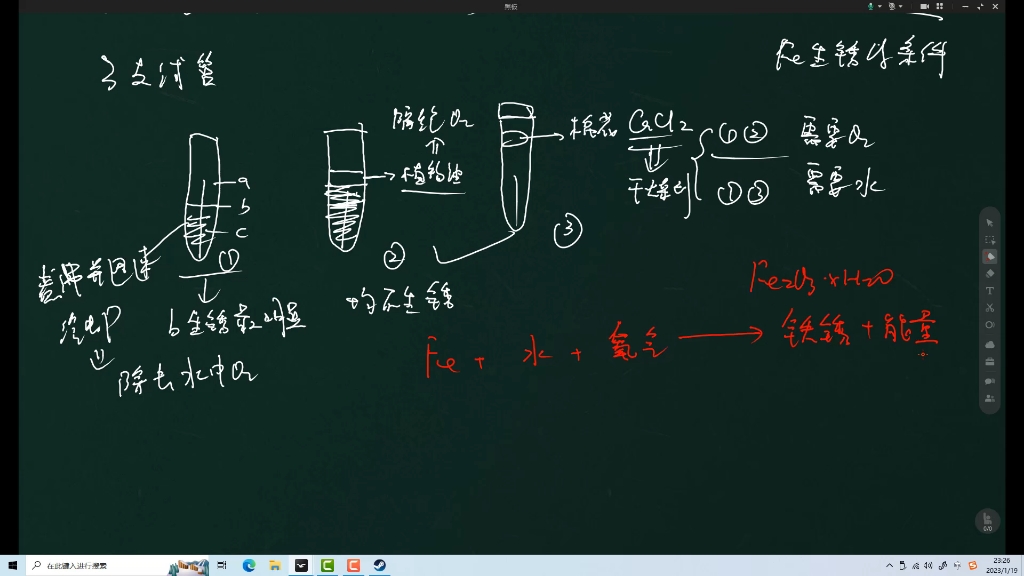 黑板
Fe生锈的条件
3支试管
隔绝O₂
植物油
棉花
CaCl₂
干燥剂
①②
需要O₂
①③
需要水
a
b
c
①
②
③
煮沸并迅速
冷却
除去水中O₂
b生锈最明显
均不生锈
Fe₂O₃·xH₂O
Fe + 水 + 氧气 → 铁锈 + 能量
0/0
在此键入进行搜索
23:26
2023/1/19